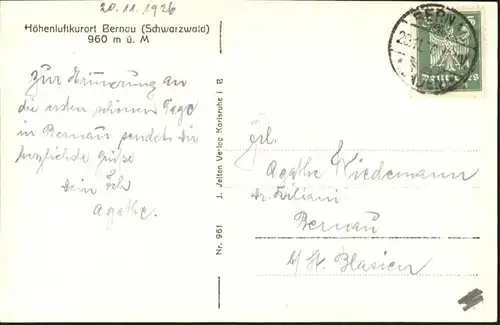 20.11.1926
Höhenluftkurort Bernau (Schwarzwald)
960 m ü. M
Zur Erinnerung an
die ersten schönen Tage
in Bernau sendet dir
herzlichste Grüße
dein
Agathe.
Nr. 961 J. Jelten Verlag Karlsruhe i B
BERN
Frl.
Agathe Wiedemann
Bernau
b/ St. Blasien